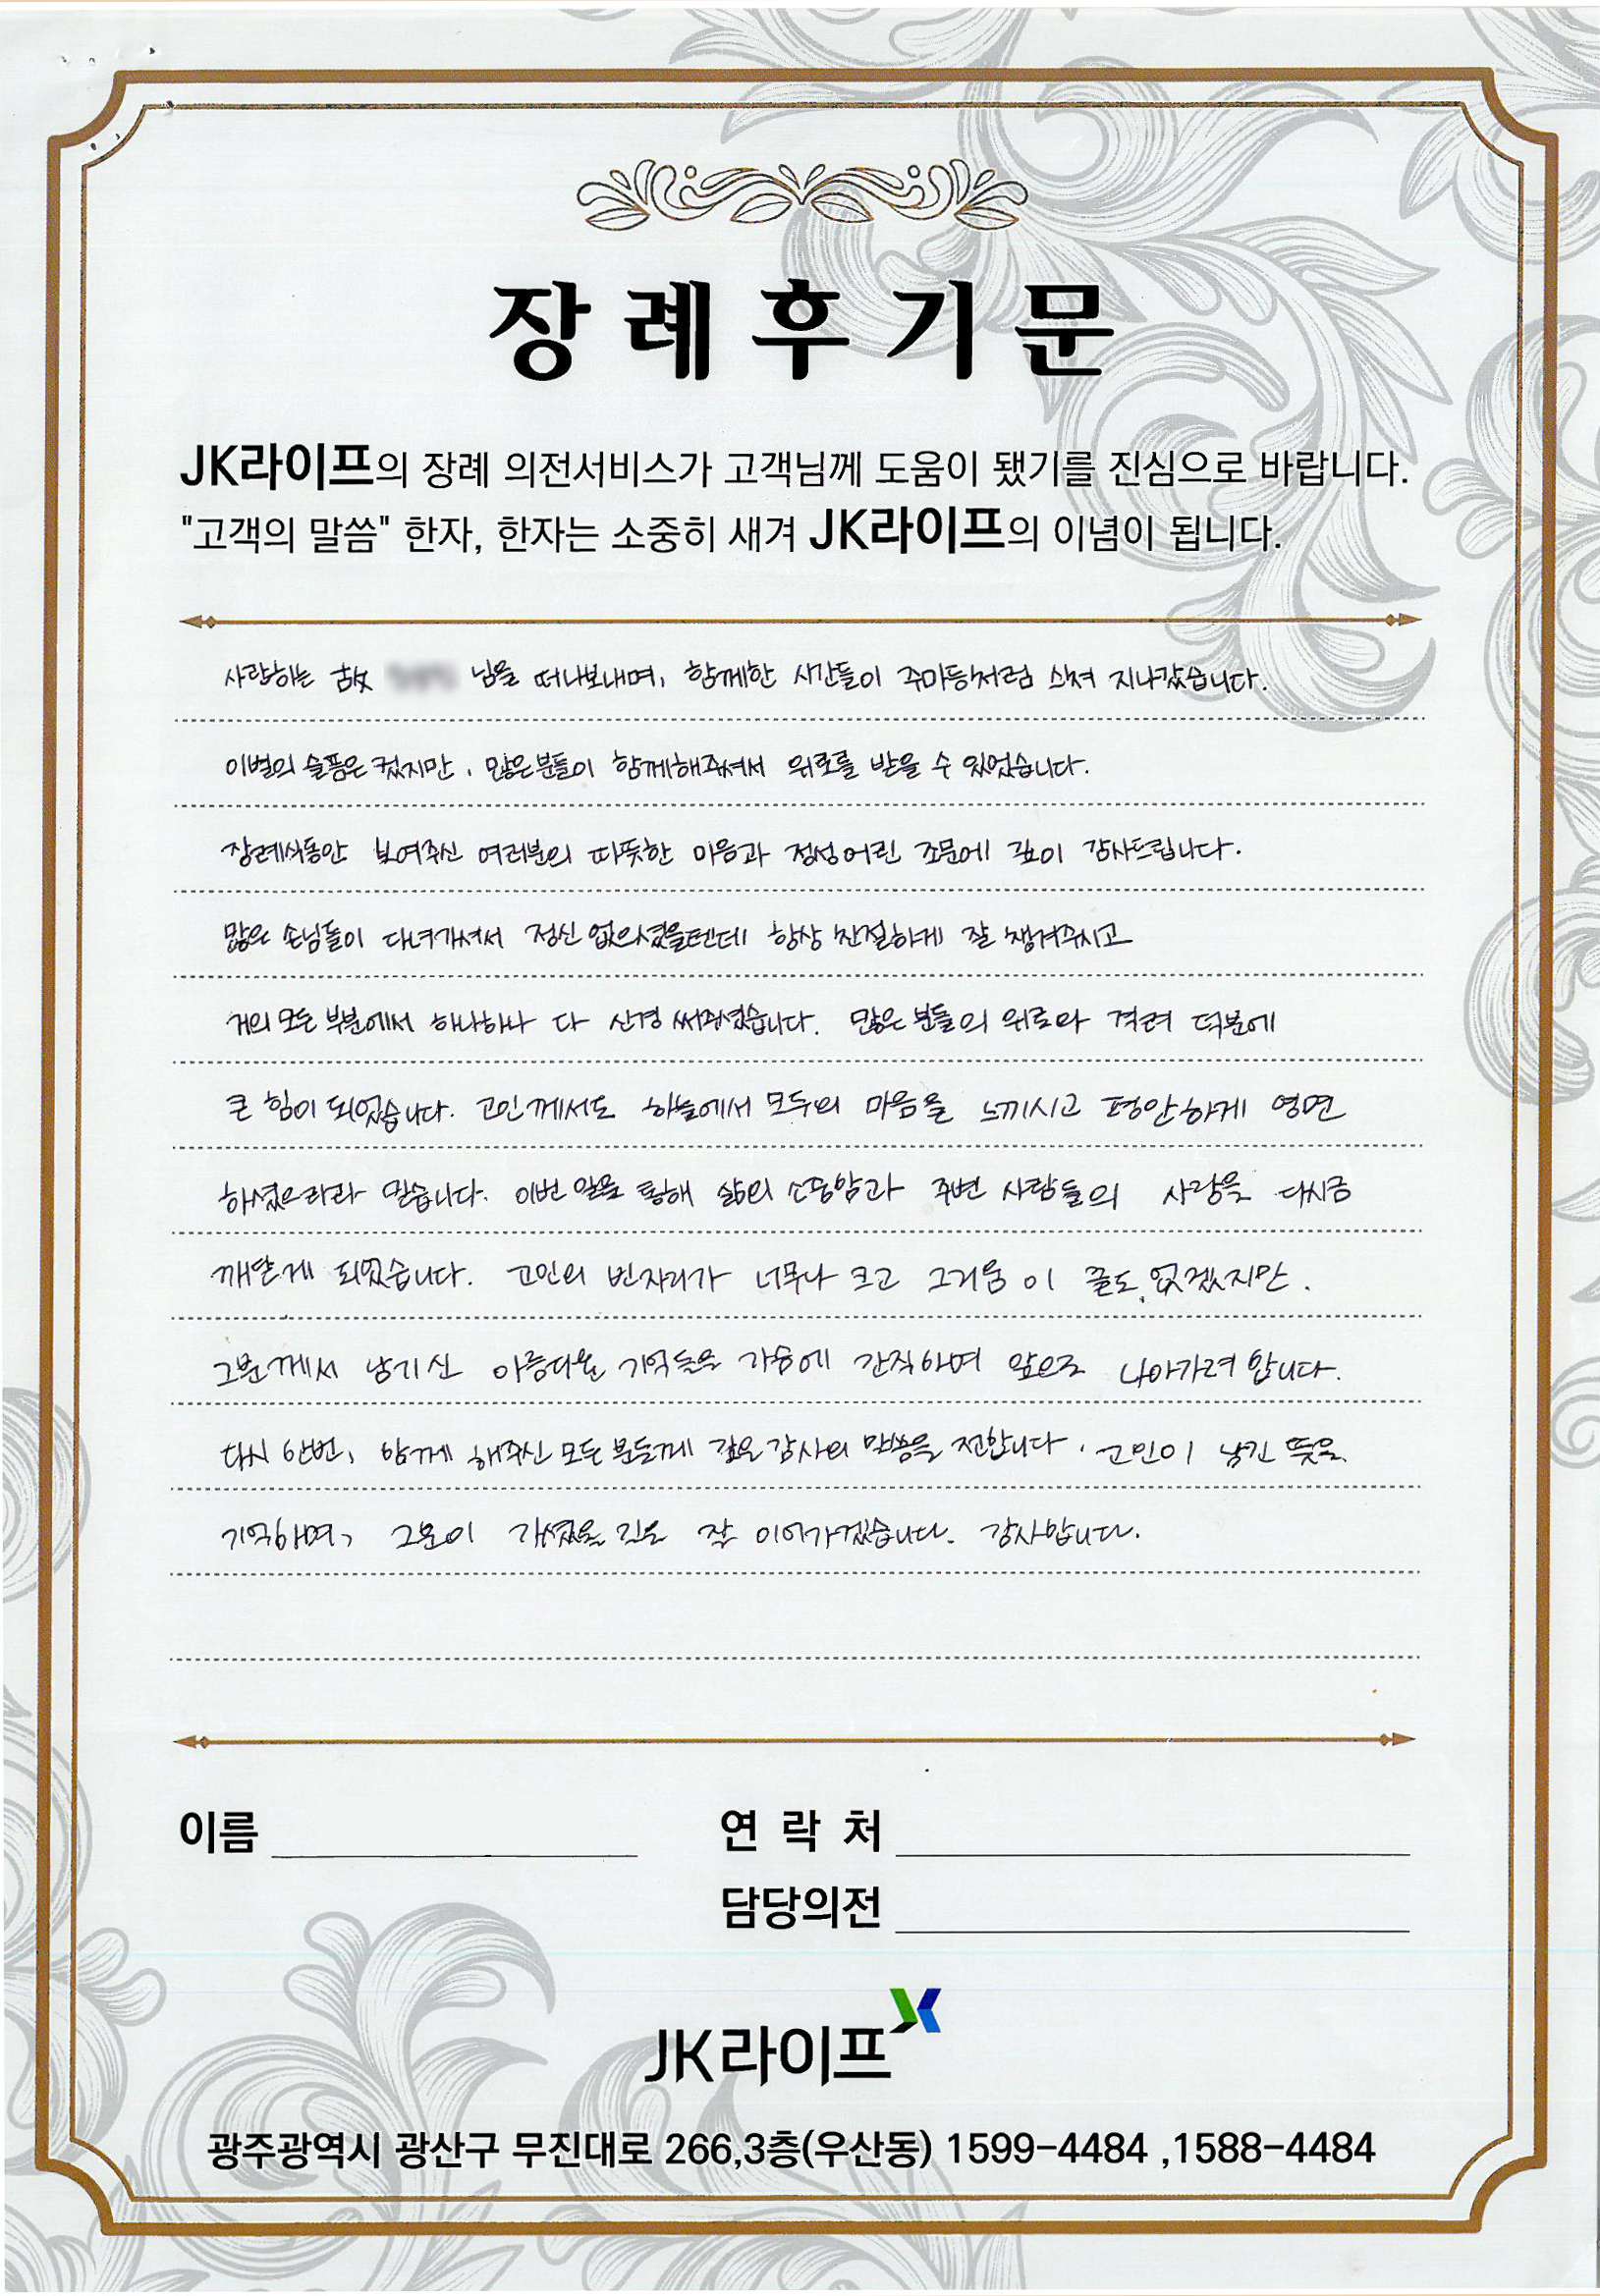 장례후기문
JK라이프의 장례 의전서비스가 고객님께 도움이 됐기를 진심으로 바랍니다.
"고객의 말씀" 한자, 한자는 소중히 새겨 JK라이프의 이념이 됩니다.
사랑하는 故 님을 떠나보내며, 함께한 시간들이 주마등처럼 스쳐 지나갔습니다.
이별의 슬픔은 컸지만, 많은분들이 함께해주셔서 위로를 받을 수 있었습니다.
장례식동안 보여주신 여러분의 따뜻한 마음과 정성어린 조문에 깊이 감사드립니다.
많은 손님들이 다녀가셔서 정신 없으셨을텐데 항상 친절하게 잘 챙겨주시고
거의 모든 부분에서 하나하나 다 신경 써주셨습니다. 많은 분들의 위로와 격려 덕분에
큰 힘이 되었습니다. 고인께서도 하늘에서 모두의 마음을 느끼시고 평안하게 영면
하셨으리라 믿습니다. 이번 일을 통해 삶의 소중함과 주변 사람들의 사랑을 다시금
깨닫게 되었습니다. 고인의 빈자리가 너무나 크고 그리움이 끝도 없겠지만,
그분께서 남기신 아름다운 기억들을 가슴에 간직하며 앞으로 나아가려 합니다.
다시 한번, 함께 해주신 모든 분들께 깊은 감사의 말씀을 전합니다. 고인이 남긴 뜻을
기억하며, 그분이 가셨을 길을 잘 이어가겠습니다. 감사합니다.
이름 연락처
담당의전
JK라이프
광주광역시 광산구 무진대로 266,3층(우산동) 1599-4484 ,1588-4484